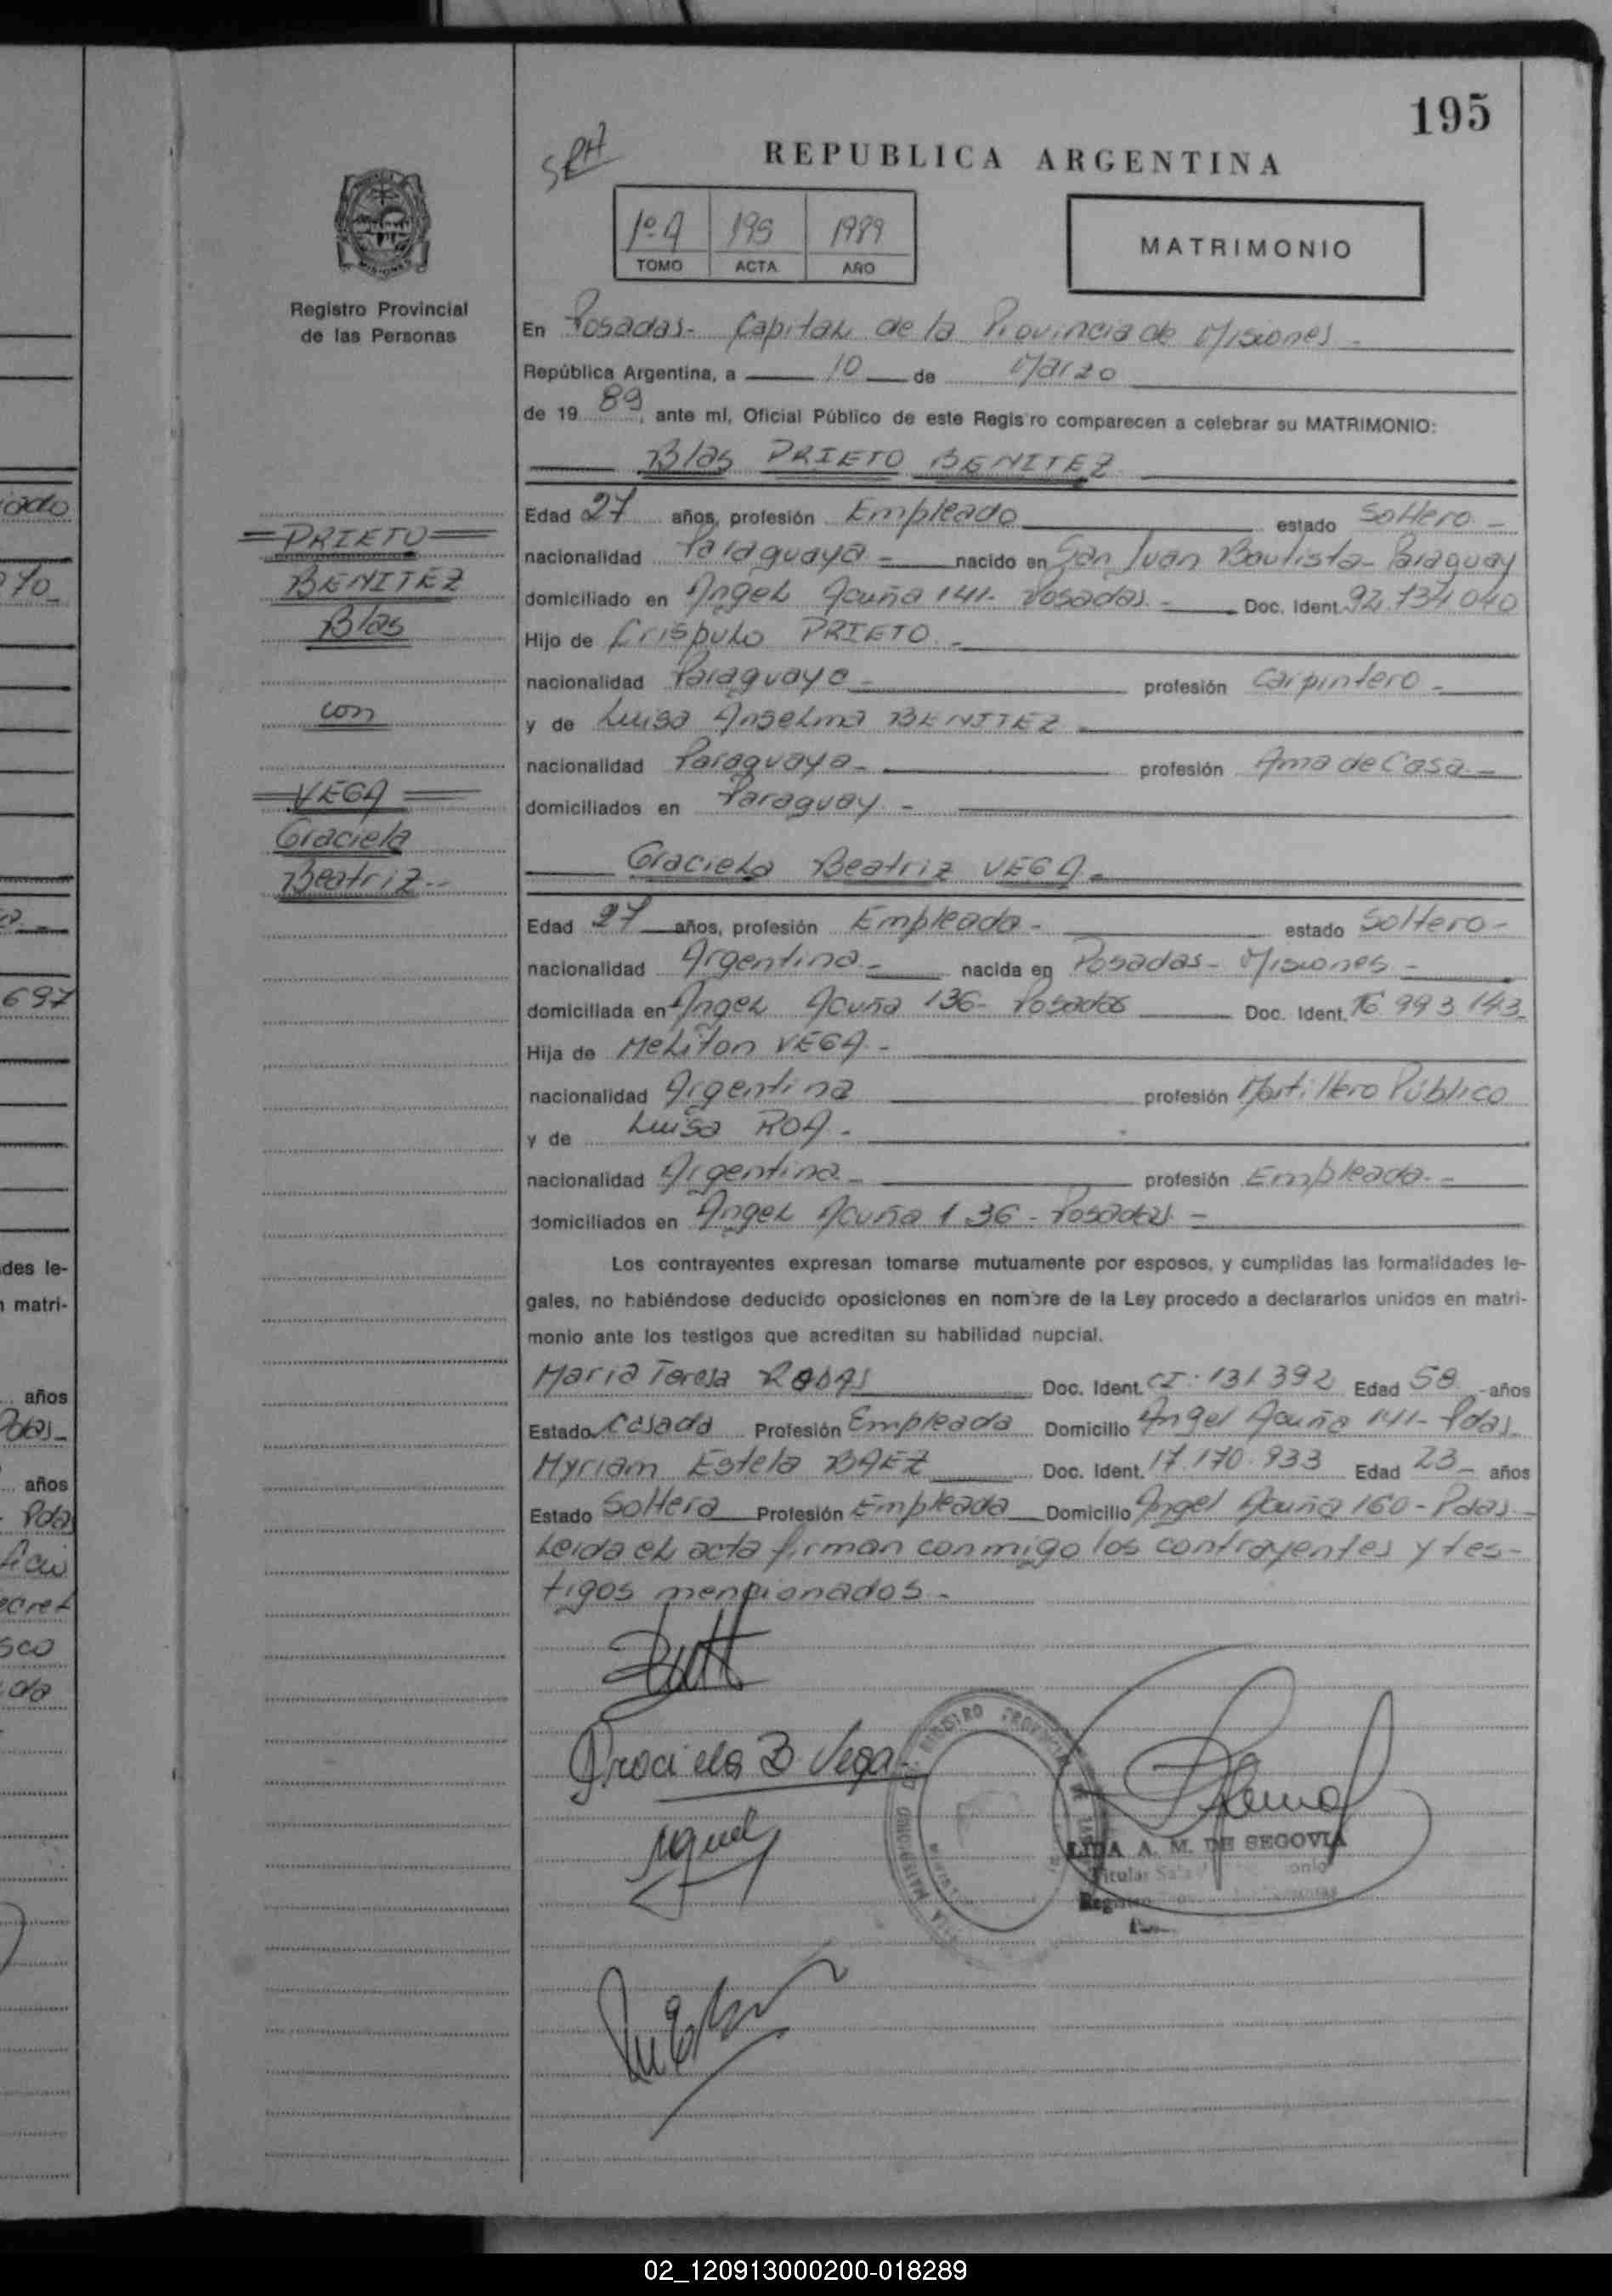 195
SRH
REPUBLICA ARGENTINA
1º A 195 1989
TOMO ACTA AÑO
MATRIMONIO
Registro Provincial
de las Personas
En Posadas- Capital de la Provincia de Misiones -
República Argentina, a 10 de Marzo
de 19 89, ante mí, Oficial Público de este Registro comparecen a celebrar su MATRIMONIO:
Blas PRIETO BENITEZ
Edad 27 años, profesión Empleado estado Soltero -
nacionalidad Paraguaya - nacido en San Juan Bautista- Paraguay
domiciliado en Angel Acuña 141- Posadas - Doc. Ident. 92.734 040
Hijo de Crispulo PRIETO -
nacionalidad Paraguaya - profesión Carpintero -
y de Luisa Anselma BENITEZ -
nacionalidad Paraguaya - profesión Ama de Casa -
domiciliados en Paraguay -
PRIETO
BENITEZ
Blas
con
VEGA
Graciela
Beatriz --
Graciela Beatriz VEGA -
Edad 27 años, profesión Empleada - estado Soltero -
nacionalidad Argentina - nacida en Posadas - Misiones -
domiciliada en Angel Acuña 136- Posadas Doc. Ident. 16 993 143
Hija de Meliton VEGA -
nacionalidad Argentina profesión Martillero Público
y de Luisa ROA -
nacionalidad Argentina - profesión Empleada -
domiciliados en Angel Acuña 136 - Posadas -
Los contrayentes expresan tomarse mutuamente por esposos, y cumplidas las formalidades le-
gales, no habiéndose deducido oposiciones en nombre de la Ley procedo a declararlos unidos en matri-
monio ante los testigos que acreditan su habilidad nupcial.
Maria Teresa Doc. Ident. CI: 131 392 Edad 58 - años
Estado Casada Profesión Empleada Domicilio Angel Acuña 141- Pdas.
Myriam Estela BAEZ Doc. Ident. 17.170.933 Edad 23 - años
Estado Soltera Profesión Empleada Domicilio Angel Acuña 160 - Pdas -
Leida el acta firman conmigo los contrayentes y tes-
tigos mencionados -
Graciela B. Vega
LIDA A. M. DE SEGOVIA
Titular Sala
Registro
ado
70
697
des le-
matri-
años
Pdas-
años
Pda
sco
da
02_120913000200-018289